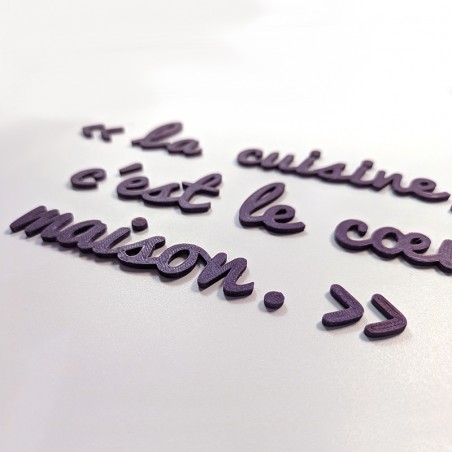 « La cuisine,
c'est le cœu
maison. »